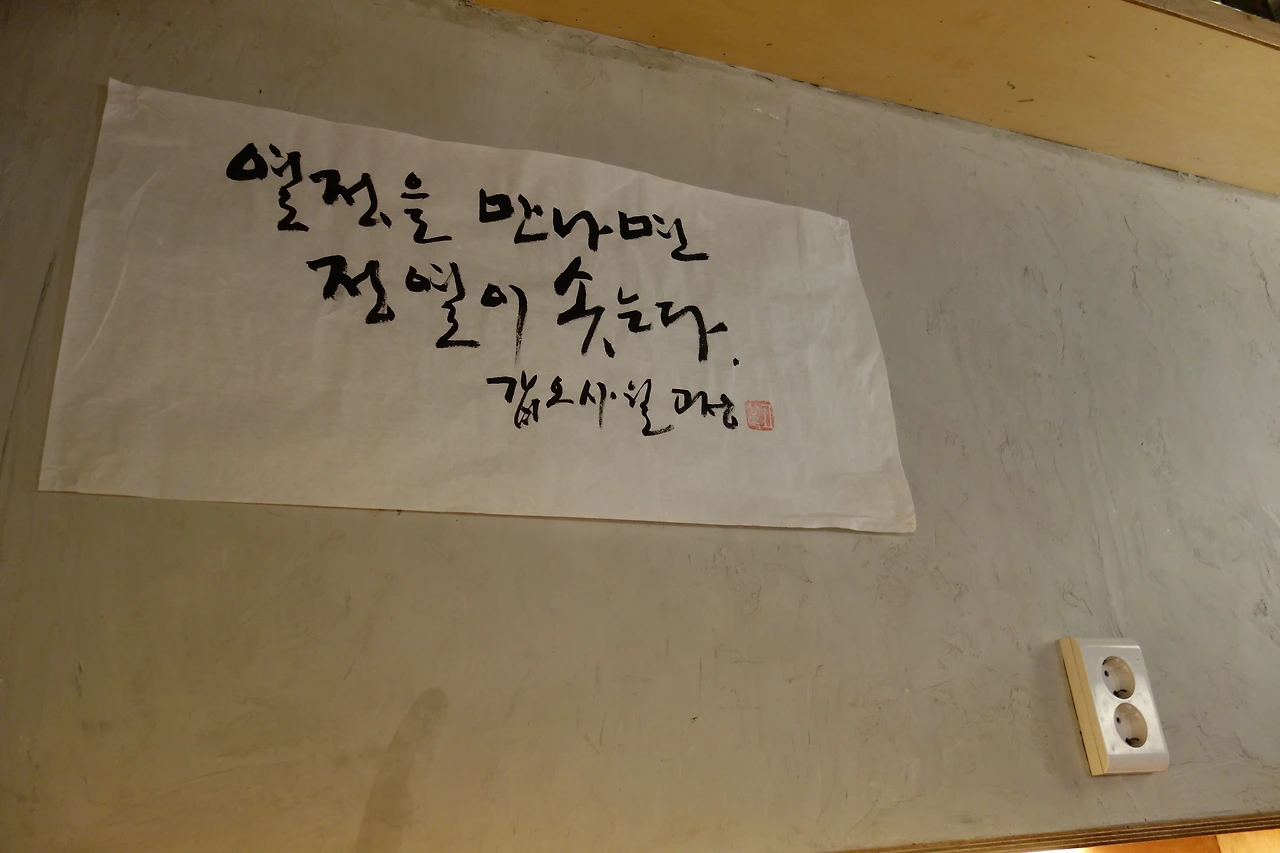 열정을 만나면
정열이 솟는다.
갑오사월